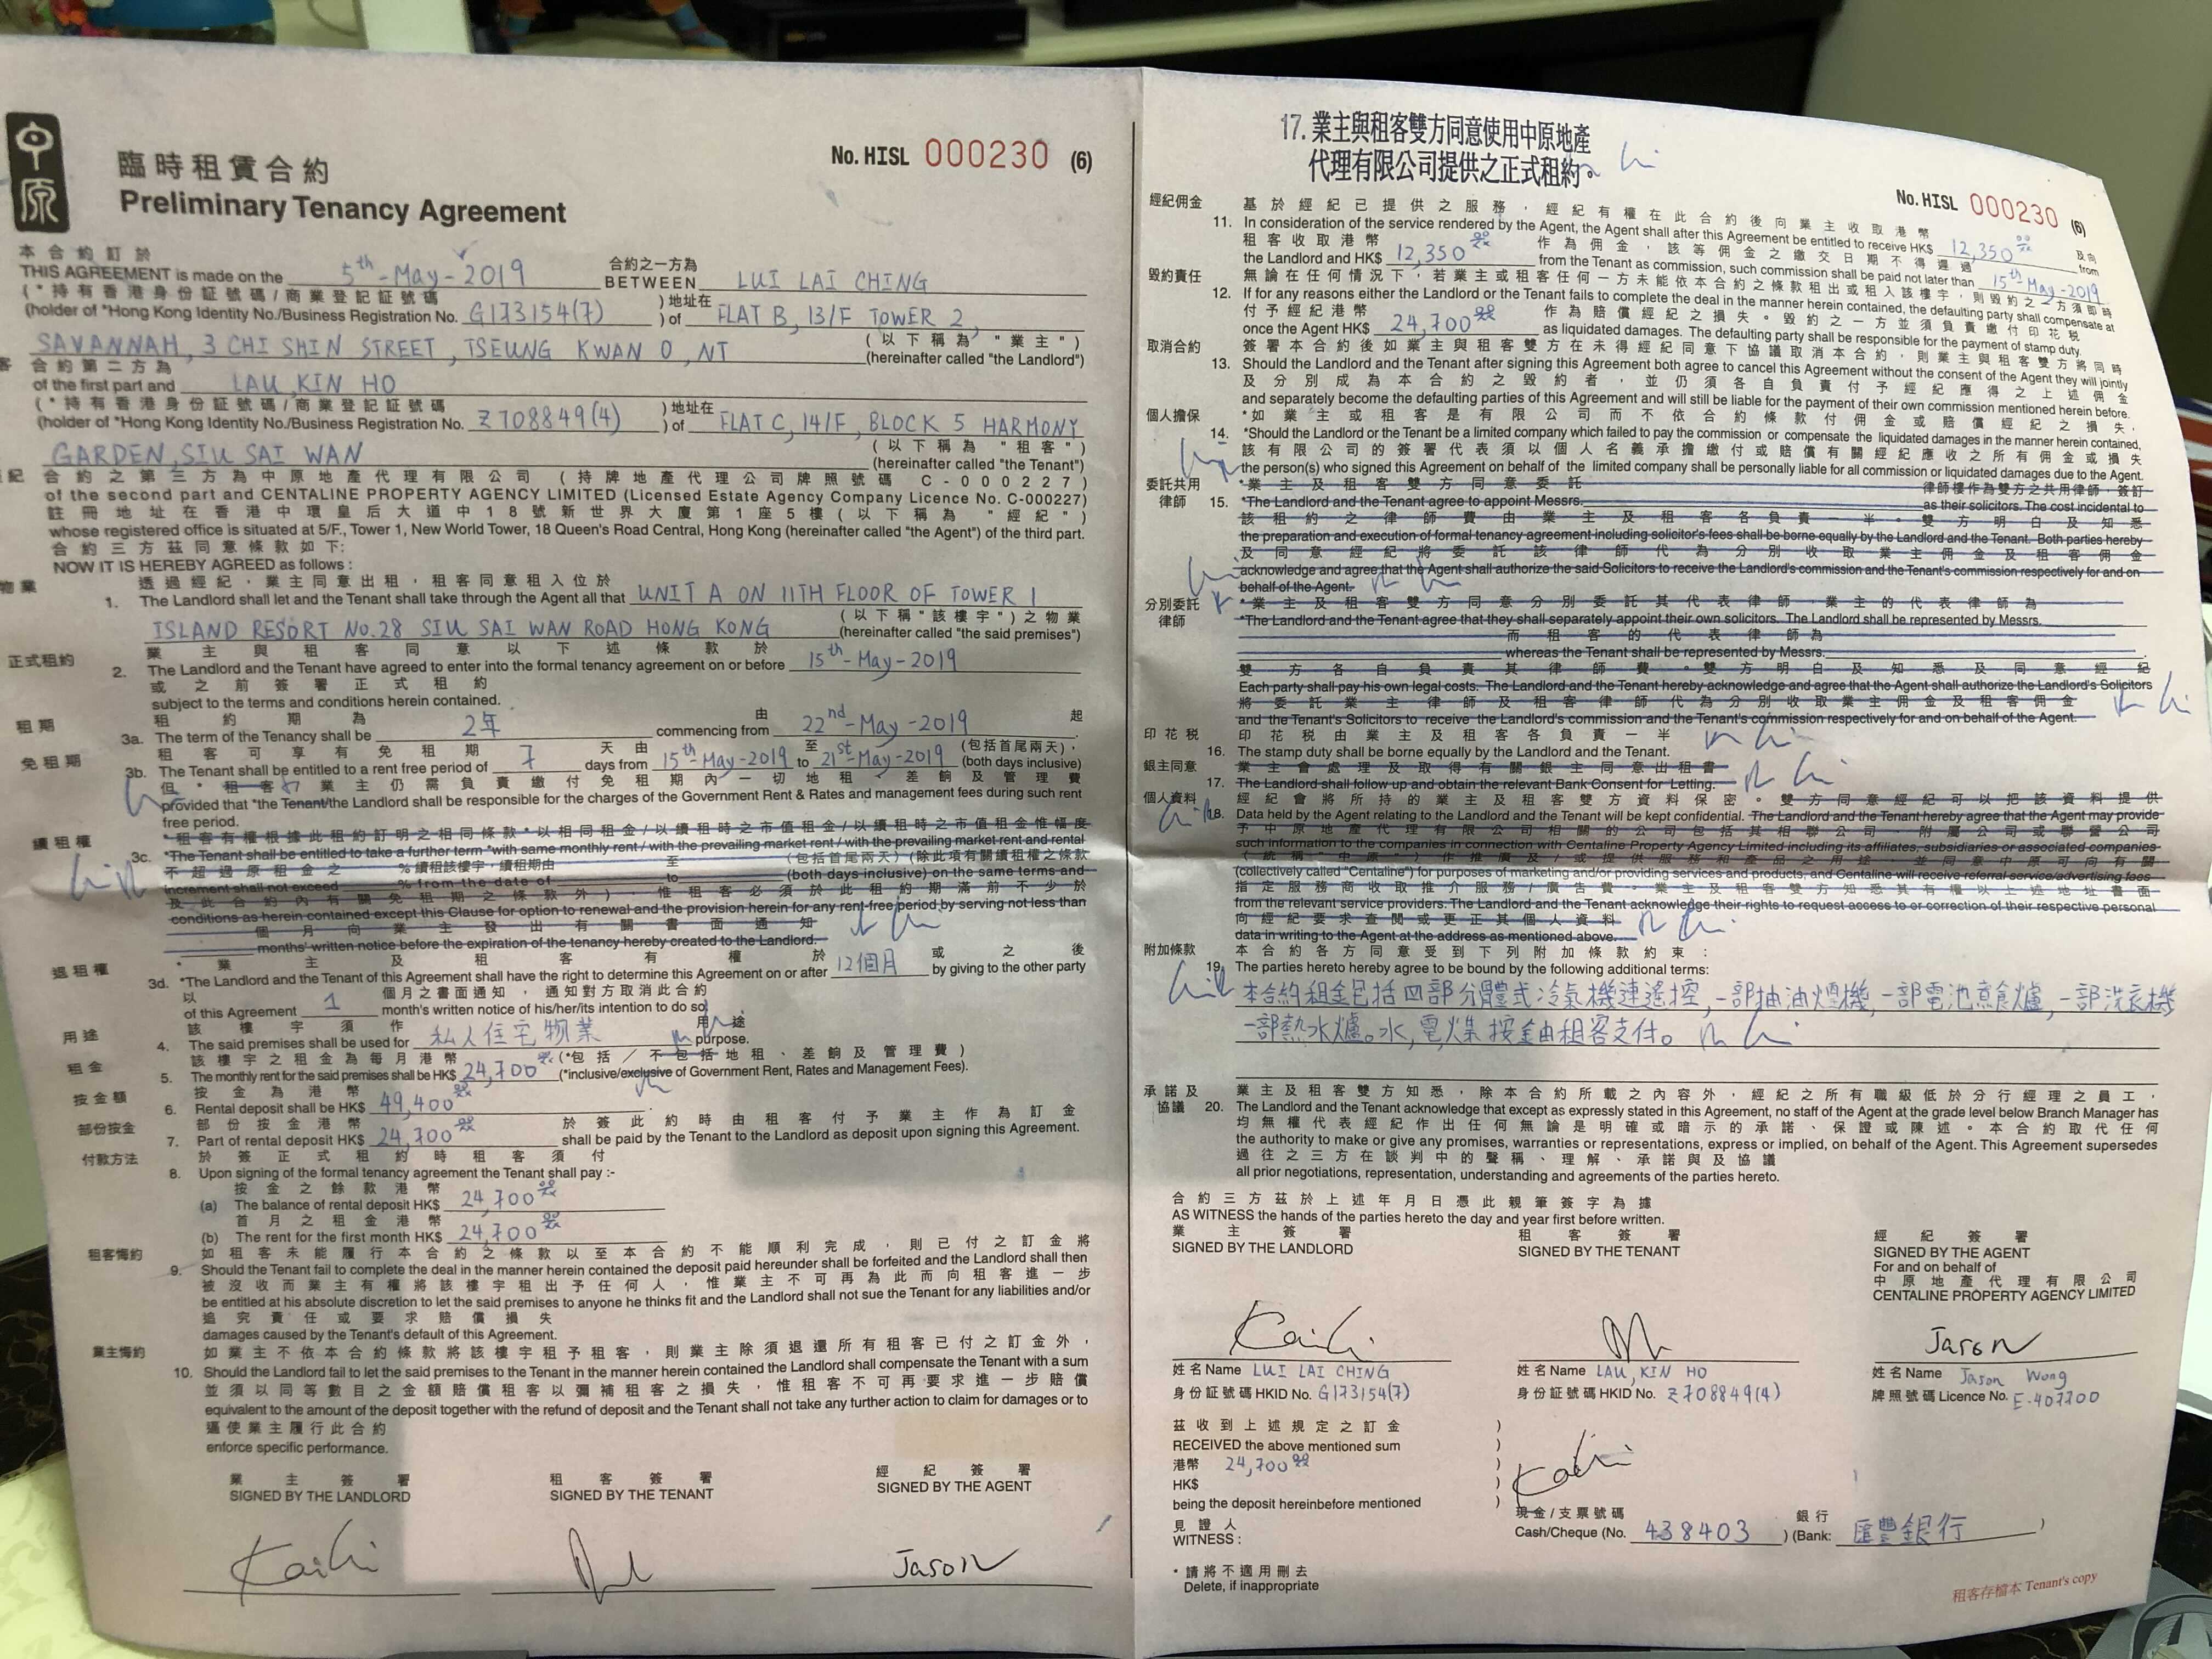 中原
臨時租賃合約
Preliminary Tenancy Agreement
No. HISL 000230 (6)
本合約訂於
THIS AGREEMENT is made on the 5th-May-2019 合約之一方為 BETWEEN LUI LAI CHING
(*持有香港身份証號碼/商業登記証號碼 )地址在
(holder of *Hong Kong Identity No./Business Registration No. G173154(7) )of FLAT B, 13/F TOWER 2,
SAVANNAH, 3 CHI SHIN STREET, TSEUNG KWAN O, NT (以下稱為"業主")
(hereinafter called "the Landlord")
客 合約第二方為
of the first part and LAU, KIN HO
(*持有香港身份証號碼/商業登記証號碼 )地址在
(holder of *Hong Kong Identity No./Business Registration No. Z708849(4) )of FLAT C, 14/F, BLOCK 5 HARMONY
GARDEN, SIU SAI WAN (以下稱為"租客")
(hereinafter called "the Tenant")
紀 合約之第三方為中原地產代理有限公司(持牌地產代理公司牌照號碼 C-000227)
of the second part and CENTALINE PROPERTY AGENCY LIMITED (Licensed Estate Agency Company Licence No. C-000227)
註冊地址在香港中環皇后大道中18號新世界大廈第1座5樓(以下稱為"經紀")
whose registered office is situated at 5/F., Tower 1, New World Tower, 18 Queen's Road Central, Hong Kong (hereinafter called "the Agent") of the third part.
合約三方茲同意條款如下:
NOW IT IS HEREBY AGREED as follows :
物業 透過經紀,業主同意出租,租客同意租入位於
1. The Landlord shall let and the Tenant shall take through the Agent all that UNIT A ON 11TH FLOOR OF TOWER 1
ISLAND RESORT NO.28 SIU SAI WAN ROAD HONG KONG (以下稱"該樓宇")之物業
(hereinafter called "the said premises")
正式租約 業主與租客同意以下述條款於
2. The Landlord and the Tenant have agreed to enter into the formal tenancy agreement on or before 15th-May-2019
或之前簽署正式租約
subject to the terms and conditions herein contained.
租期 租約期為 由 起
3a. The term of Tenancy shall be 2年 commencing from 22nd-May-2019
免租期 租客可享有免租期 天由 至 (包括首尾兩天),
3b. The Tenant shall be entitled to a rent free period of 7 days from 15th-May-2019 to 21st-May-2019 (both days inclusive)
但*租客/業主仍需負責繳付免租期內一切地租、差餉及管理費
provided that *the Tenant/the Landlord shall be responsible for the charges of the Government Rent & Rates and management fees during such rent
free period.
續租權 *租客有權根據此租約訂明之相同條款*以相同租金/以續租時之市值租金/以續租時之市值租金惟幅度
3c. *The Tenant shall be entitled to take a further term *with same monthly rent / with the prevailing market rent / with the prevailing market rent and rental
不超過原租金之 %續租該樓宇,續租期由 至 (包括首尾兩天)(除此項有關續租權之條款
increment shall not exceed % from the date of to (both days inclusive) on the same terms and
及此合約內有關免租期之條款外),惟租客必須於此租約期滿前不少於
conditions as herein contained except this Clause for option to renewal and the provision herein for any rent-free period by serving not less than
個月向業主發出有關書面通知
months' written notice before the expiration of the tenancy hereby created to the Landlord.
退租權 *業主及租客有權於 或之後
3d. *The Landlord and the Tenant of this Agreement shall have the right to determine this Agreement on or after 12個月 by giving to the other party
以 個月之書面通知,通知對方取消此合約
of this Agreement 1 month's written notice of his/her/its intention to do so.
用途 該樓宇須作 用途
4. The said premises shall be used for 私人住宅物業 purpose.
租金 該樓宇之租金為每月港幣 (*包括/不包括地租、差餉及管理費)
5. The monthly rent for the said premises shall be HK$ 24,700 (*inclusive/exclusive of Government Rent, Rates and Management Fees).
按金額 按金為港幣
6. Rental deposit shall be HK$ 49,400
部份按金 部份按金港幣 於簽此約時由租客付予業主作為訂金
7. Part of rental deposit HK$ 24,700 shall be paid by the Tenant to the Landlord as deposit upon signing this Agreement.
付款方法 於簽正式租約時租客須付
8. Upon signing of the formal tenancy agreement the Tenant shall pay :-
按金之餘款港幣
(a) The balance of rental deposit HK$ 24,700
首月之租金港幣
(b) The rent for the first month HK$ 24,700
租客悔約 如租客未能履行本合約之條款以至本合約不能順利完成,則已付之訂金將
9. Should the Tenant fail to complete the deal in the manner herein contained the deposit paid hereunder shall be forfeited and the Landlord shall then
被沒收而業主有權將該樓宇租出予任何人,惟業主不可再為此而向租客進一步
be entitled at his absolute discretion to let the said premises to anyone he thinks fit and the Landlord shall not sue the Tenant for any liabilities and/or
追究責任或要求賠償損失
damages caused by the Tenant's default of this Agreement.
業主悔約 如業主不依本合約條款將該樓宇租予租客,則業主除須退還所有租客已付之訂金外,
10. Should the Landlord fail to let the said premises to the Tenant in the manner herein contained the Landlord shall compensate the Tenant with a sum
並須以同等數目之金額賠償租客以彌補租客之損失,惟租客不可再要求進一步賠償
equivalent to the amount of the deposit together with the refund of deposit and the Tenant shall not take any further action to claim for damages or to
逼使業主履行此合約
enforce specific performance.
業主簽署 租客簽署 經紀簽署
SIGNED BY THE LANDLORD SIGNED BY THE TENANT SIGNED BY THE AGENT
Jason
17. 業主與租客雙方同意使用中原地產
代理有限公司提供之正式租約。
No. HISL 000230 (6)
經紀佣金 基於經紀已提供之服務,經紀有權在此合約後向業主收取港幣
11. In consideration of the service rendered by the Agent, the Agent shall after this Agreement be entitled to receive HK$ 12,350 及向 from
租客收取港幣 作為佣金,該等佣金之繳交日期不得遲過
the Landlord and HK$ 12,350 from the Tenant as commission, such commission shall be paid not later than 15th-May-2019
毀約責任 無論在任何情況下,若業主或租客任何一方未能依本合約之條款租出或租入該樓宇,則毀約之一方須即時
12. If for any reasons either the Landlord or the Tenant fails to complete the deal in the manner herein contained, the defaulting party shall compensate at
付予經紀港幣 作為賠償經紀之損失。毀約之一方並須負責繳付印花稅
once the Agent HK$ 24,700 as liquidated damages. The defaulting party shall be responsible for the payment of stamp duty.
取消合約 簽署本合約後如業主與租客雙方在未得經紀同意下協議取消本合約,則業主與租客雙方將同時
13. Should the Landlord and the Tenant after signing this Agreement both agree to cancel this Agreement without the consent of the Agent they will jointly
及分別成為本合約之毀約者,並仍須各自負責付予經紀應得之上述佣金
and separately become the defaulting parties of this Agreement and will still be liable for the payment of their own commission mentioned herein before.
個人擔保 *如業主或租客是有限公司而不依合約條款付佣金或賠償經紀之損失,
14. *Should the Landlord or the Tenant be a limited company which failed to pay the commission or compensate the liquidated damages in the manner herein contained,
該有限公司的簽署代表須以個人名義承擔繳付或賠償有關經紀應收之所有佣金或損失
the person(s) who signed this Agreement on behalf of the limited company shall be personally liable for all commission or liquidated damages due to the Agent.
委託共用 *業主及租客雙方同意委託 律師樓作為雙方之共用律師,簽訂
律師 15. *The Landlord and the Tenant agree to appoint Messrs. as their solicitors. The cost incidental to
該租約之律師費由業主及租客各負責一半。雙方明白及知悉
the preparation and execution of formal tenancy agreement including solicitor's fees shall be borne equally by the Landlord and the Tenant. Both parties hereby
及同意經紀將委託該律師代為分別收取業主佣金及租客佣金
acknowledge and agree that the Agent shall authorize the said Solicitors to receive the Landlord's commission and the Tenant's commission respectively for and on
behalf of the Agent.
分別委託 *業主及租客雙方同意分別委託其代表律師,業主的代表律師為
律師 *The Landlord and the Tenant agree that they shall separately appoint their own solicitors. The Landlord shall be represented by Messrs.
而租客的代表律師為
whereas the Tenant shall be represented by Messrs.
雙方各自負責其律師費。雙方明白及知悉及同意經紀
Each party shall pay his own legal costs. The Landlord and the Tenant hereby acknowledge and agree that the Agent shall authorize the Landlord's Solicitors
將委託業主律師及租客律師代為分別收取業主佣金及租客佣金
and the Tenant's Solicitors to receive the Landlord's commission and the Tenant's commission respectively for and on behalf of the Agent.
印花稅 印花稅由業主及租客各負責一半
16. The stamp duty shall be borne equally by the Landlord and the Tenant.
銀主同意 業主會處理及取得有關銀主同意出租書
17. The Landlord shall follow up and obtain the relevant Bank Consent for Letting.
個人資料 經紀會將所持的業主及租客雙方資料保密。雙方同意經紀可以把該資料提供
18. Data held by the Agent relating to the Landlord and the Tenant will be kept confidential. The Landlord and the Tenant hereby agree that the Agent may provide
予中原地產代理有限公司相關的公司包括其相聯公司、附屬公司或聯營公司
such information to the companies in connection with Centaline Property Agency Limited including its affiliates, subsidiaries or associated companies
(統稱"中原")作推廣及/或提供服務和產品之用途,並同意中原可向有關
(collectively called "Centaline") for purposes of marketing and/or providing services and products, and Centaline will receive referral service/advertising fees
指定服務商收取推介服務/廣告費。業主及租客雙方知悉其有權以上述地址書面
from the relevant service providers. The Landlord and the Tenant acknowledge their rights to request access to or correction of their respective personal
向經紀要求查閱或更正其個人資料
data in writing to the Agent at the address as mentioned above.
附加條款 本合約各方同意受到下列附加條款約束:
19. The parties hereto hereby agree to be bound by the following additional terms:
本合約租金包括四部分體式冷氣機連遙控,一部抽油煙機,一部電池煮食爐,一部洗衣機
一部熱水爐。水,電,煤按金由租客支付。
承諾及 業主及租客雙方知悉,除本合約所載之內容外,經紀之所有職級低於分行經理之員工,
協議 20. The Landlord and the Tenant acknowledge that except as expressly stated in this Agreement, no staff of the Agent at the grade level below Branch Manager has
均無權代表經紀作出任何無論是明確或暗示的承諾、保證或陳述。本合約取代任何
the authority to make or give any promises, warranties or representations, express or implied, on behalf of the Agent. This Agreement supersedes
過往之三方在談判中的聲稱、理解、承諾與及協議
all prior negotiations, representation, understanding and agreements of the parties hereto.
合約三方茲於上述年月日憑此親筆簽字為據
AS WITNESS the hands of the parties hereto the day and year first before written.
業主簽署 租客簽署 經紀簽署
SIGNED BY THE LANDLORD SIGNED BY THE TENANT SIGNED BY THE AGENT
For and on behalf of
中原地產代理有限公司
CENTALINE PROPERTY AGENCY LIMITED
Jason
姓名Name LUI LAI CHING 姓名Name LAU, KIN HO 姓名Name Jason Wong
身份証號碼HKID No. G173154(7) 身份証號碼HKID No. Z708849(4) 牌照號碼Licence No. E-407700
茲收到上述規定之訂金 )
RECEIVED the above mentioned sum )
港幣 24,700 )
HK$ )
being the deposit hereinbefore mentioned )
見證人 現金/支票號碼 銀行
WITNESS : Cash/Cheque (No. 438403 ) (Bank: 匯豐銀行 )
*請將不適用刪去
Delete, if inappropriate
租客存檔本 Tenant's copy